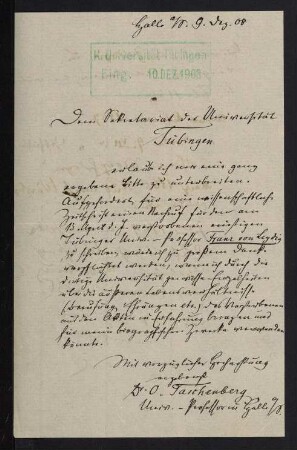 Halle a/S. 9. Dez. 08
K. Universität Tübingen
Eing. 10 DEZ. 1908
Dem Sekretariat der Universität
Tübingen
erlaube ich mir eine ganz
ergebene Bitte zu unterbreiten.
Aufgefordert, für eine wissenschaftliche
Zeitschrift den Nachruf für den am
13. April d. J. verstorbenen einstigen
Tübinger Univ.-Professor Franz von Leydig
zu schreiben, würde ich zu großem Dank
verpflichtet werden, wenn ich durch die
dortige Universität gewisse Einzelheiten
über die äusseren Lebensverhältnisse
(Berufung, Ehrungen etc.) des Verstorbenen
aus den Akten in Erfahrung bringen und
für meine biographischen Zwecke verwenden
könnte.
Mit vorzüglicher Hochachtung
ergebenst
Dr. O. Taschenberg
Univ.-Professor in Halle a/S.